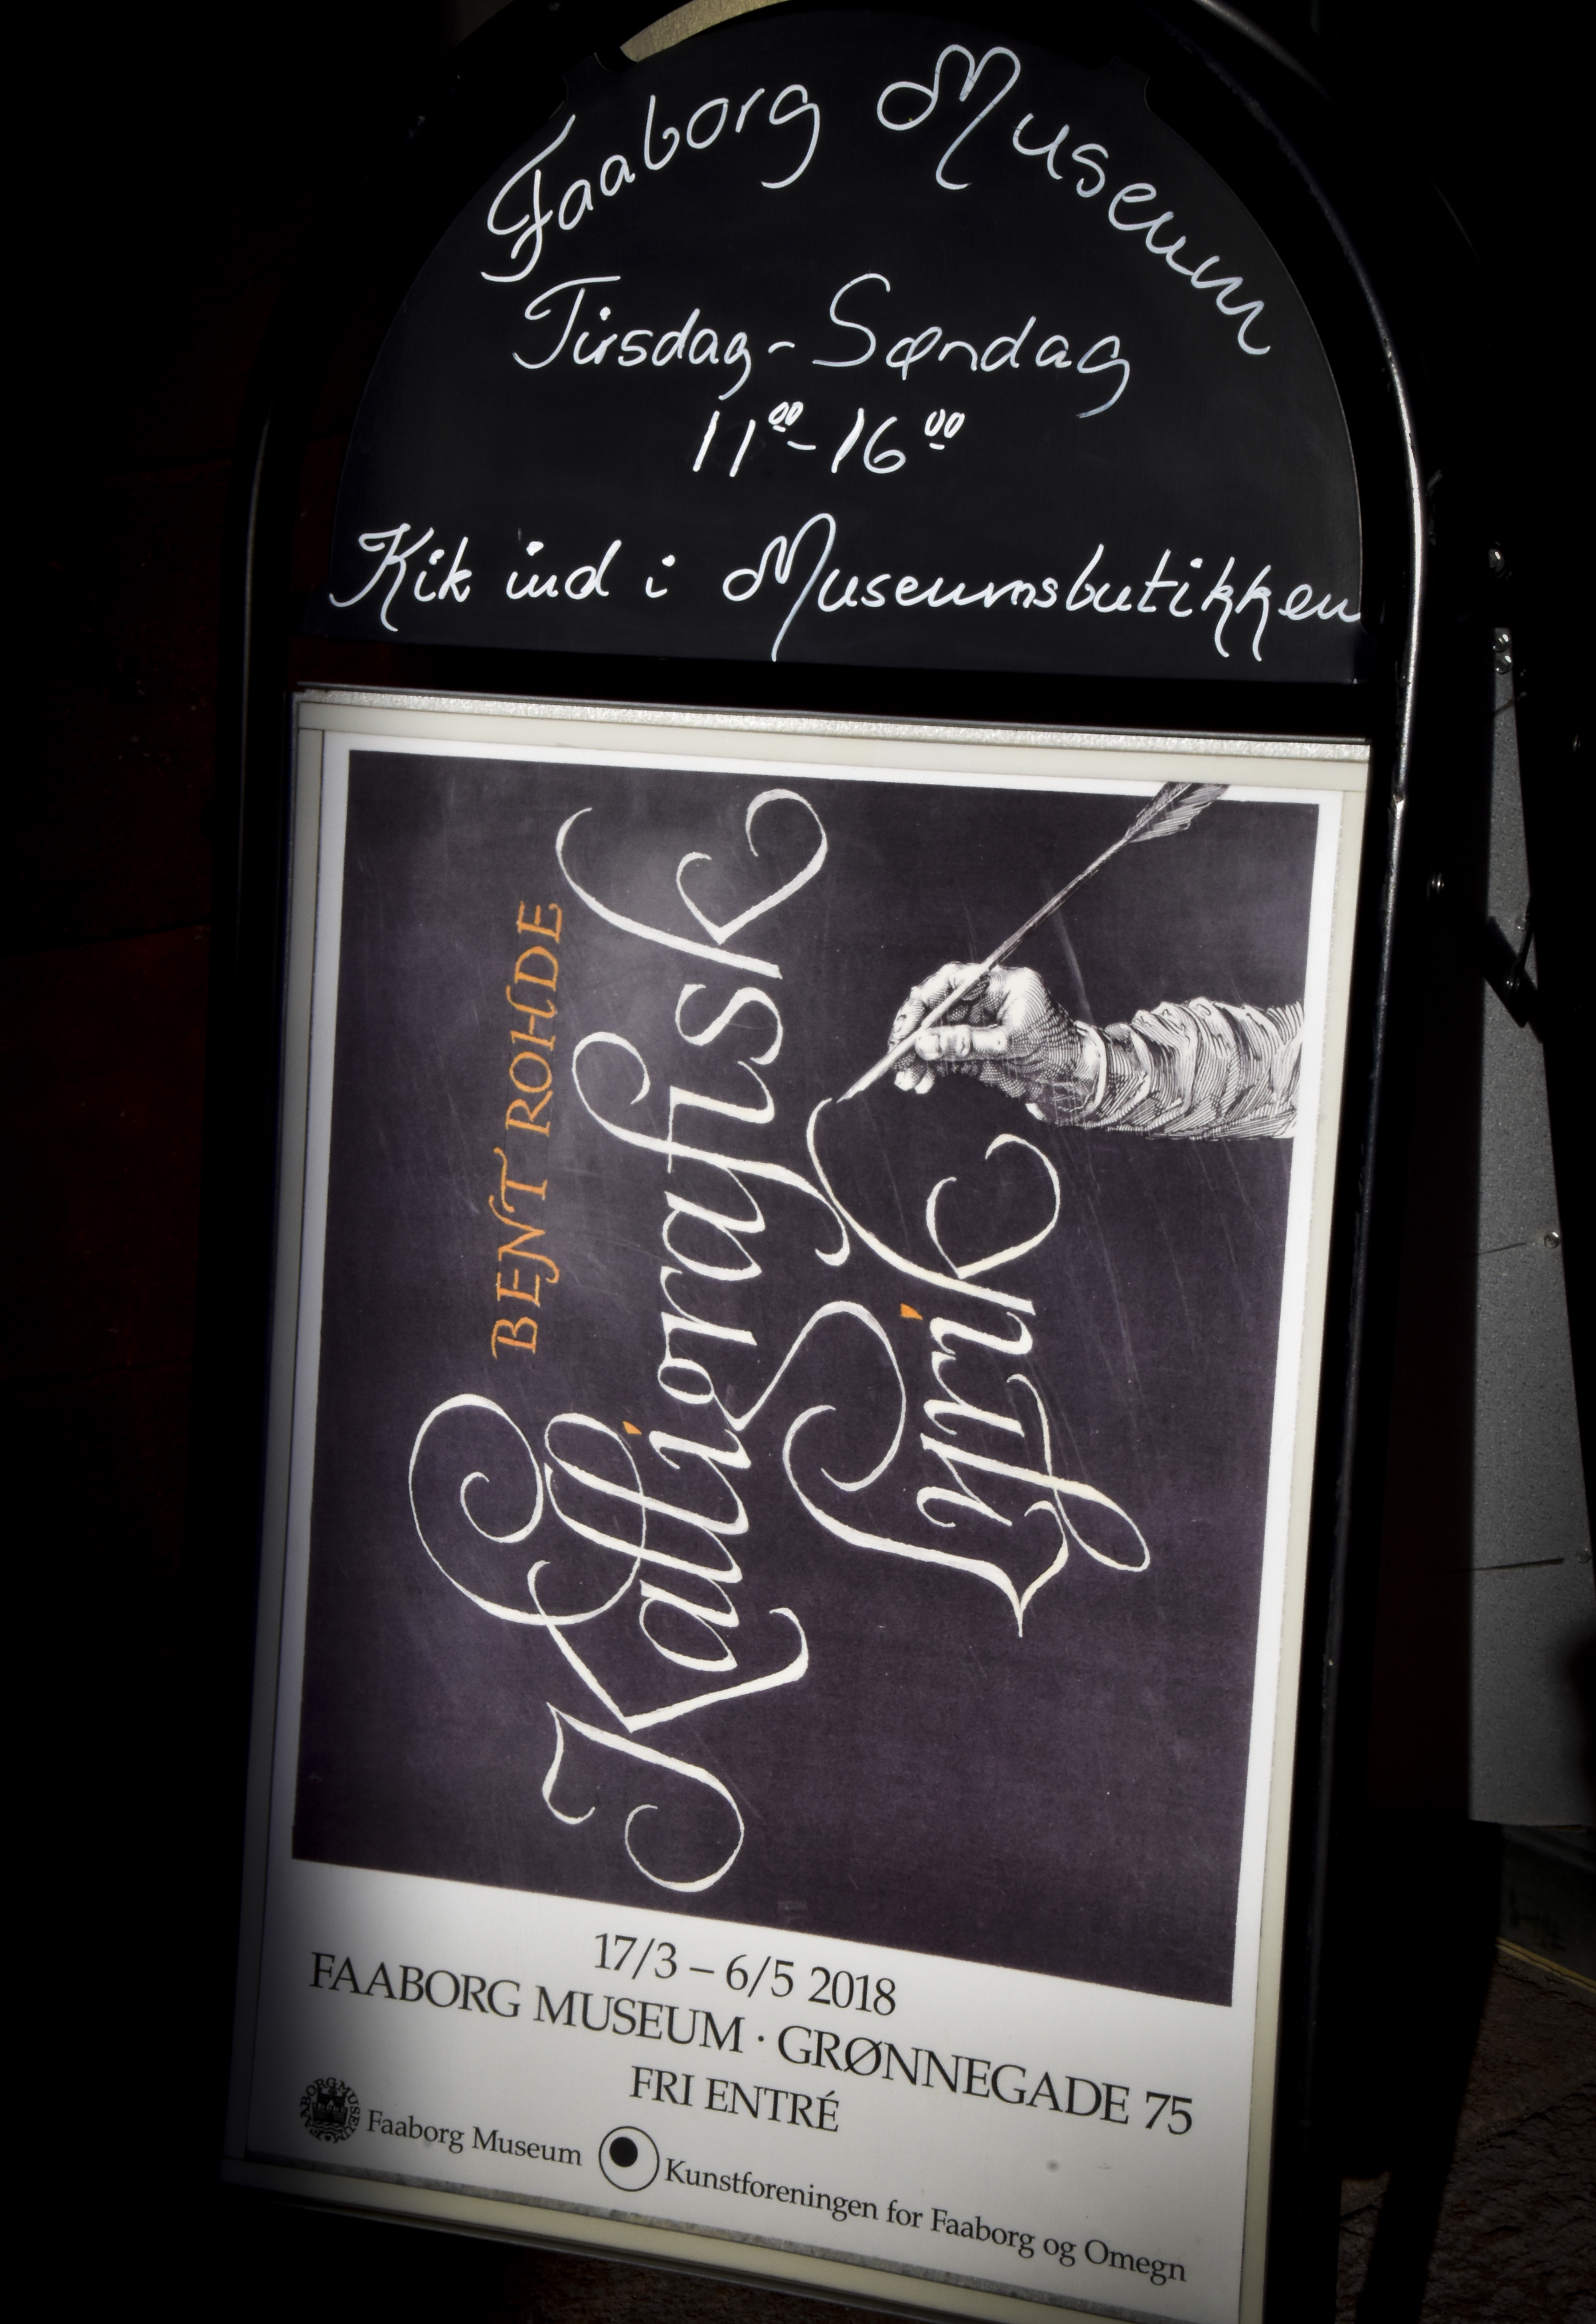 Faaborg Museum
Tirsdag - Søndag
11⁰⁰-16⁰⁰
Kik ind i Museumsbutikken
BENT ROHDE
Kalligrafisk
Lyrik
17/3 – 6/5 2018
FAABORG MUSEUM · GRØNNEGADE 75
FRI ENTRÉ
FAABORG MUSEUM
Faaborg Museum
Kunstforeningen for Faaborg og Omegn